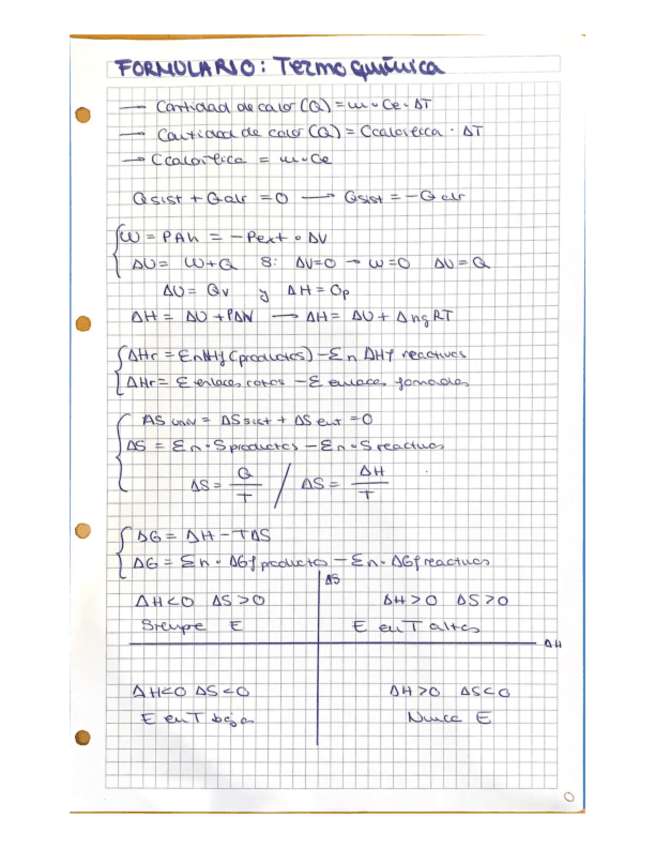 FORMULARIO: Termoquímica
— Cantidad de calor (Q) = m · Ce · ΔT
— Cantidad de calor (Q) = Ccalorífica · ΔT
→ Ccalorífica = m · Ce
Qsist + Qalr = 0 → Qsist = -Qalr
W = PΔh = -Pext · ΔV
ΔU = W+Q Si ΔV=0 → W=0 ΔU = Q
ΔU = Qv y ΔH = Qp
ΔH = ΔU + PΔV → ΔH = ΔU + ΔngRT
ΔHr = Σn ΔHf (productos) - Σn ΔHf reactivos
ΔHr = Σ enlaces rotos - Σ enlaces formados
ΔS univ = ΔSsist + ΔS ent = 0
ΔS = Σn · Sproductos - Σn · Sreactivos
ΔS = Q/T / ΔS = ΔH/T
ΔG = ΔH - TΔS
ΔG = Σn · ΔGf productos - Σn · ΔGf reactivos
ΔS
ΔH<0 ΔS>0 ΔH>0 ΔS>0
Siempre E E en T altas
ΔH
ΔH<0 ΔS<0 ΔH>0 ΔS<0
E en T bajas Nunca E